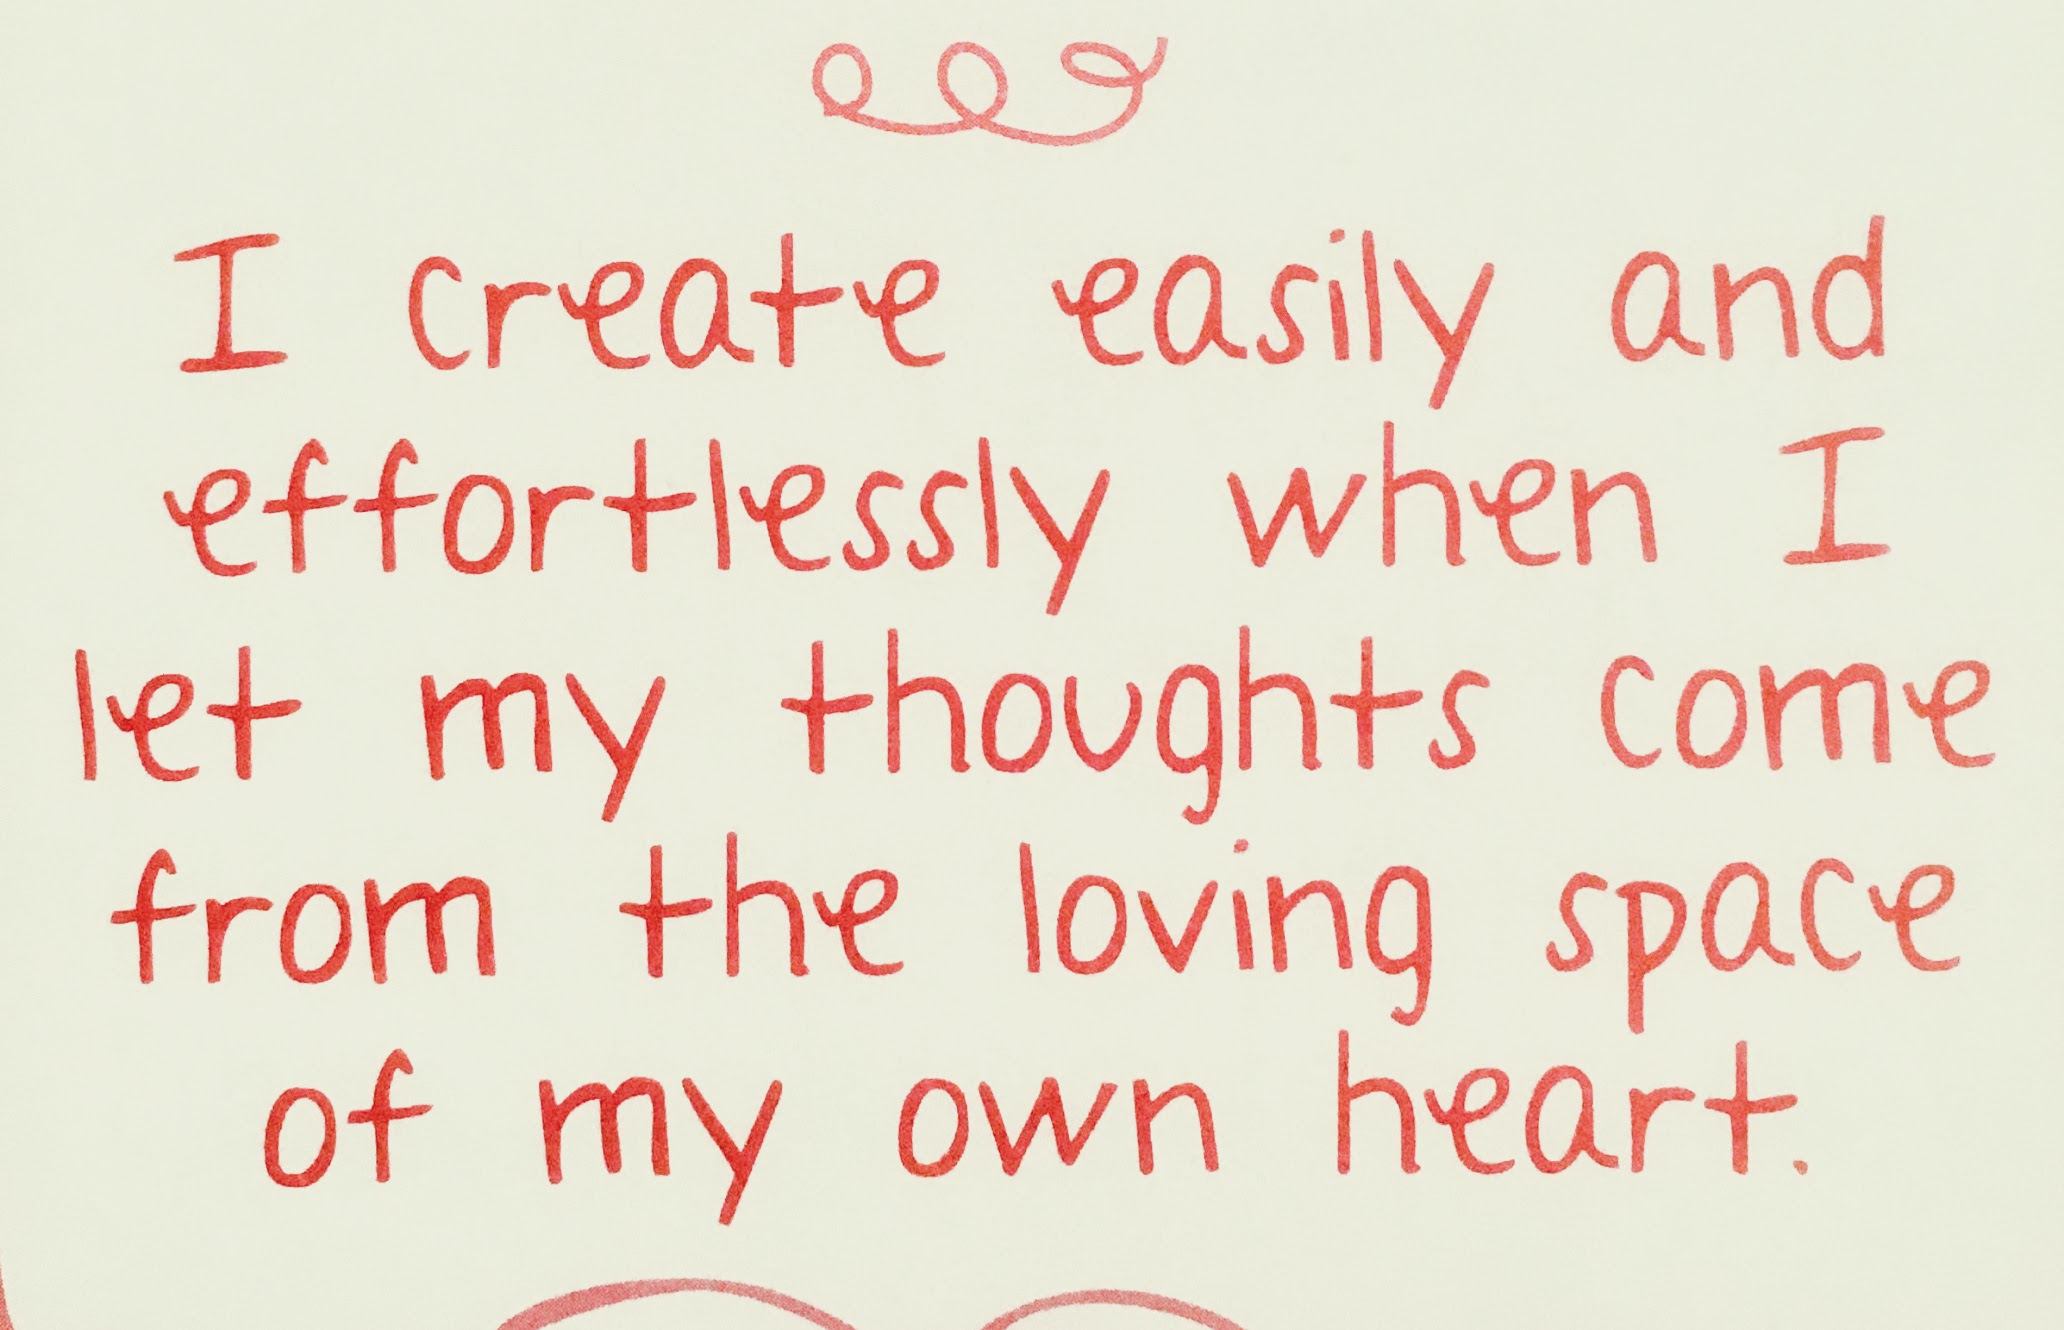 I create easily and
effortlessly when I
let my thoughts come
from the loving space
of my own heart.